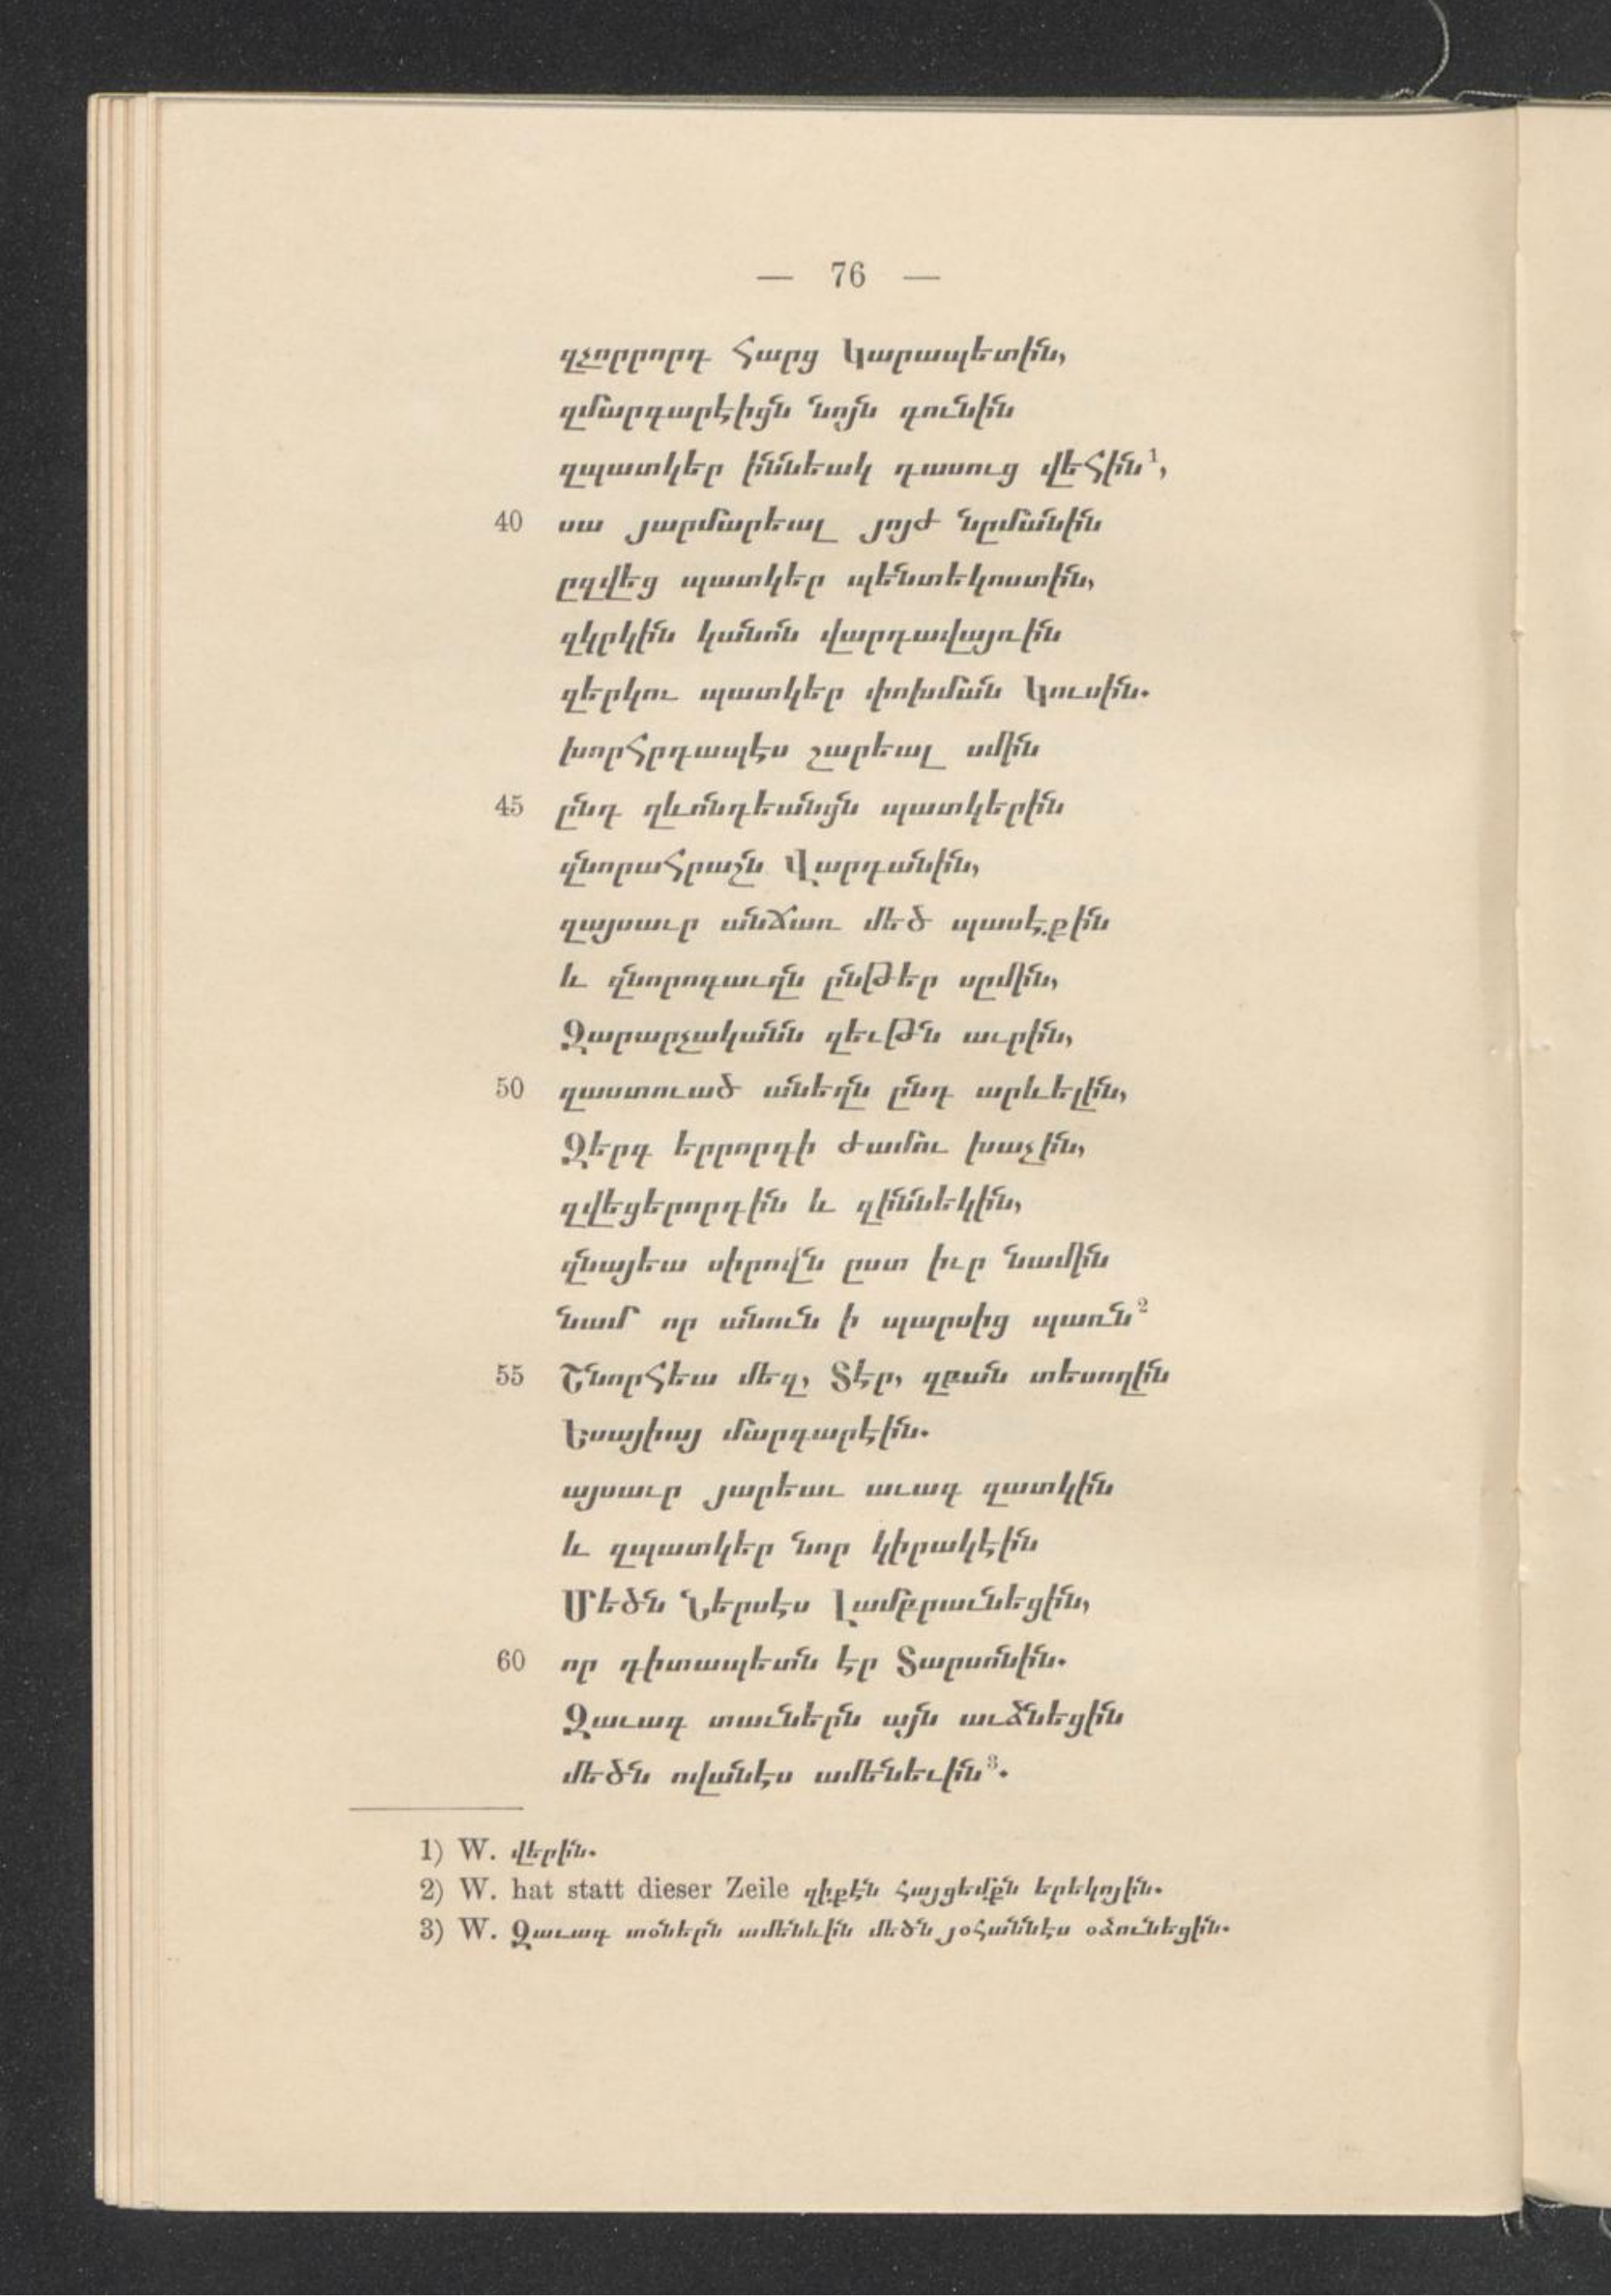 — 76 —
զչորրորդ Հարց Կարապետին,
զմարգարէիցն նոյն գունին
զպատկեր իննեակ դասուց վեհին¹,
40 սա յարմարեալ յոյժ նըմանին
ըզվեց պատկեր պենտեկոստին,
զկրկին կանոն վարդավայռին
զերկու պատկեր փոխման Կուսին.
խորհրդապէս շարեալ սմին
45 ընդ ղևոնդեանցն պատկերին
զնորահրաշն Վարդանին,
զայսաւր անճառ մեծ պասէքին
և զնորոգաւղն ընթեր սըմին,
Զարարչականն զեւթն աւրին,
50 զաստուած անեղն ընդ արևելին,
Զերգ երրորդի ժամու խաչին,
զվեցերորդին և զիննեկին,
զնայեա սիրովն ըստ իւր նամին
նամ որ անուն ի պարսից պառն²
55 Շնորհեա մեզ, Տէր, զբան տեսողին
Եսայիայ մարգարէին.
այսաւր յարեաւ աւագ զատկին
և զպատկեր նոր կիրակէին
Մեծն Ներսէս Լամբրաւնեցին,
60 որ դիտապետն էր Տարսոնին.
Զաւագ տաւներն այն աւձնեցին
մեծն ովանէս ամենեւին³.
1) W. վերին.
2) W. hat statt dieser Zeile զիքէն հայցեմքն երեկոյին.
3) W. Զաւագ տօներն ամենևին մեծն յօհաննէս օձունեցին.